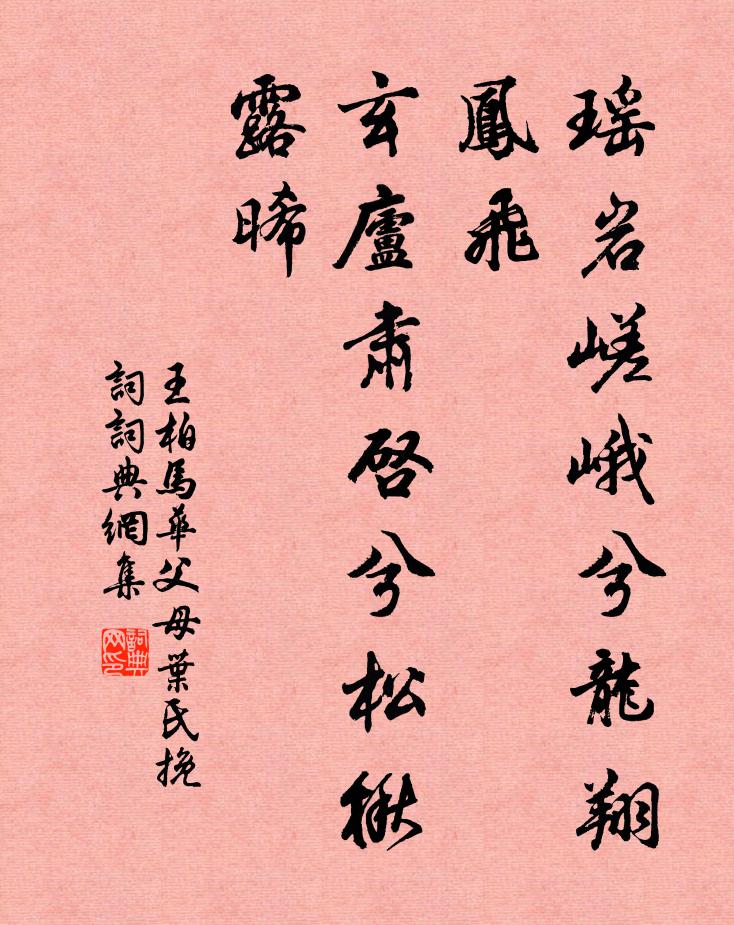 瑶岩嵯峨兮龍翔
鳳飛
玄廬肅啓兮松楸
露晞
王柏馬華父母葉氏挽
詞詞典網集
詞典网印